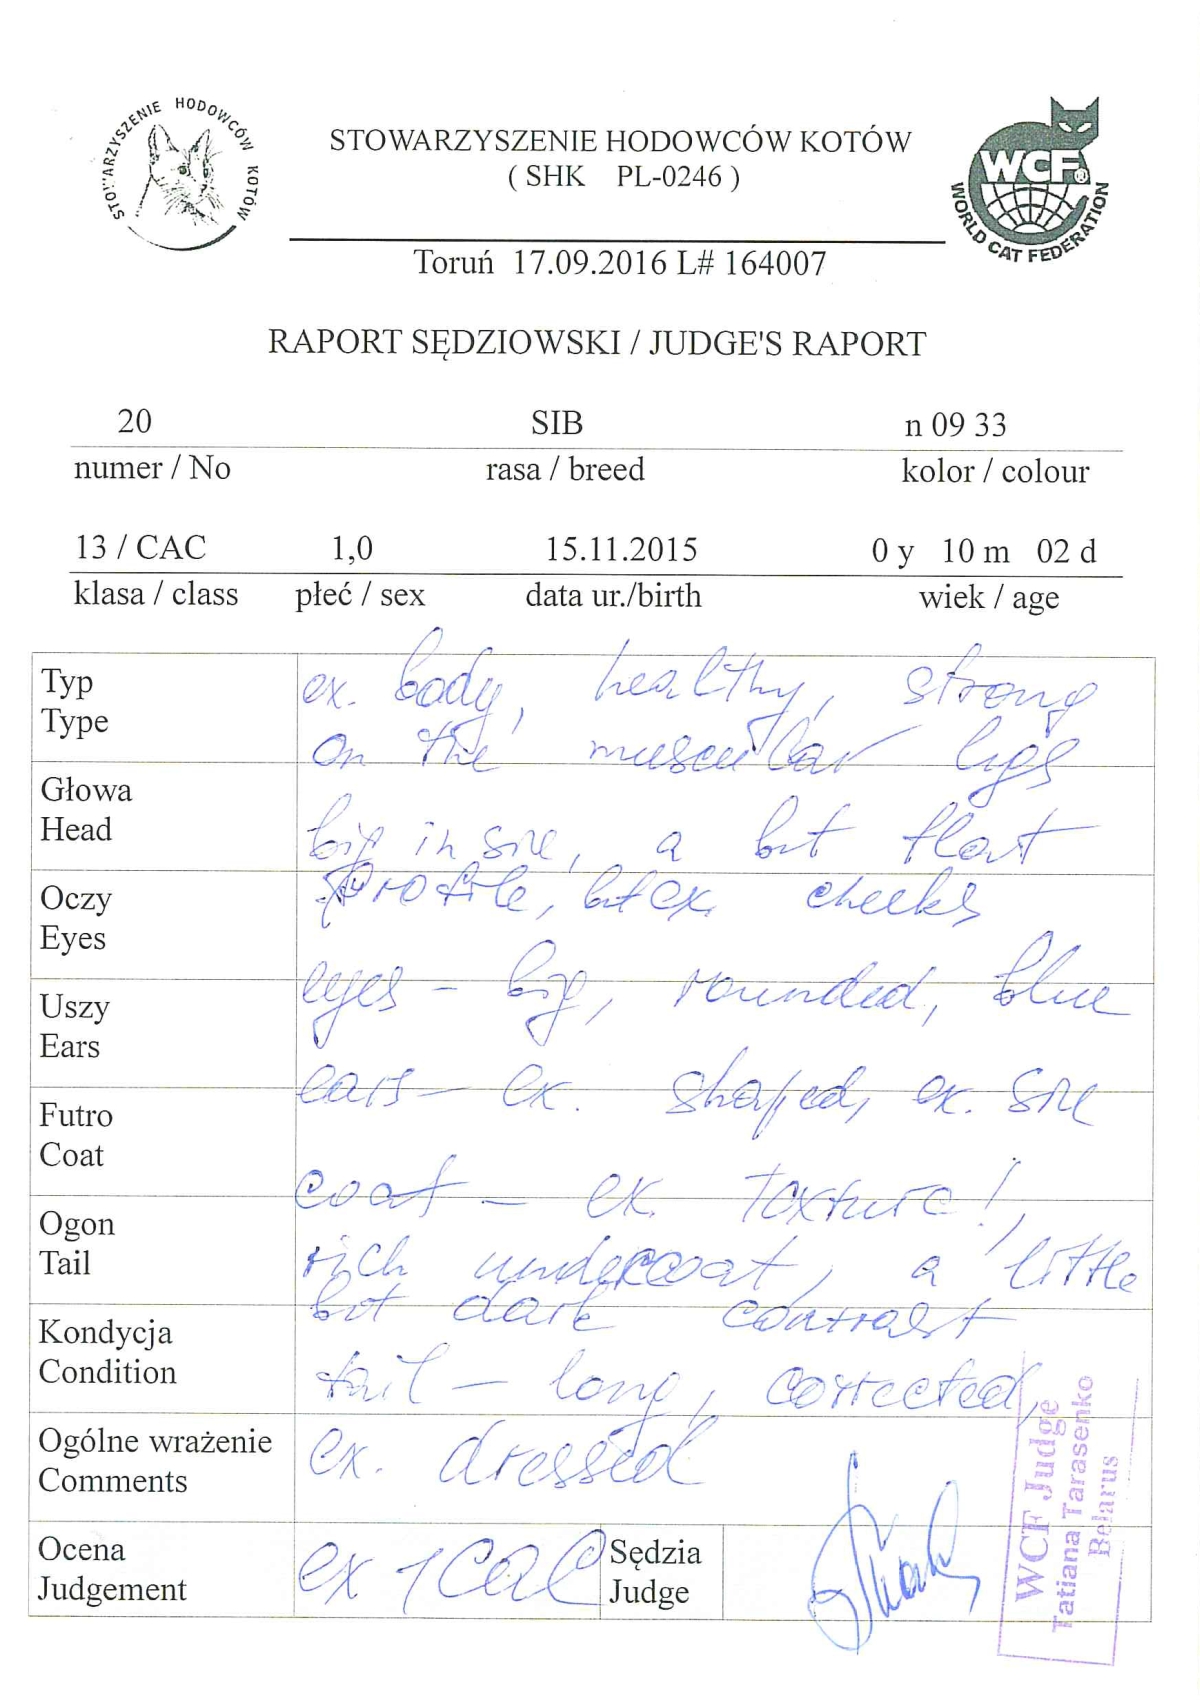 STOWARZYSZENIE HODOWCÓW KOTÓW
STOWARZYSZENIE HODOWCÓW KOTÓW
( SHK PL-0246 )
WCF®
WORLD CAT FEDERATION
Toruń 17.09.2016 L# 164007
RAPORT SĘDZIOWSKI / JUDGE'S RAPORT
20 SIB n 09 33
numer / No rasa / breed kolor / colour
13 / CAC 1,0 15.11.2015 0 y 10 m 02 d
klasa / class płeć / sex data ur./birth wiek / age
Typ
Type
ex. body, healthy, strong
on the muscular legs
Głowa
Head
big in size, a bit flat
profile, but ex. cheeks
Oczy
Eyes
eyes - big, rounded, blue
Uszy
Ears
ears - ex. shaped, ex. size
Futro
Coat
coat - ex. texture!,
rich undercoat, a little
bit dark contrast
Ogon
Tail
tail - long, corrected,
ex. dressed
Kondycja
Condition
Ogólne wrażenie
Comments
Ocena
Judgement
ex 1 CAC
Sędzia
Judge
WCF Judge
Tatiana Tarasenko
Belarus